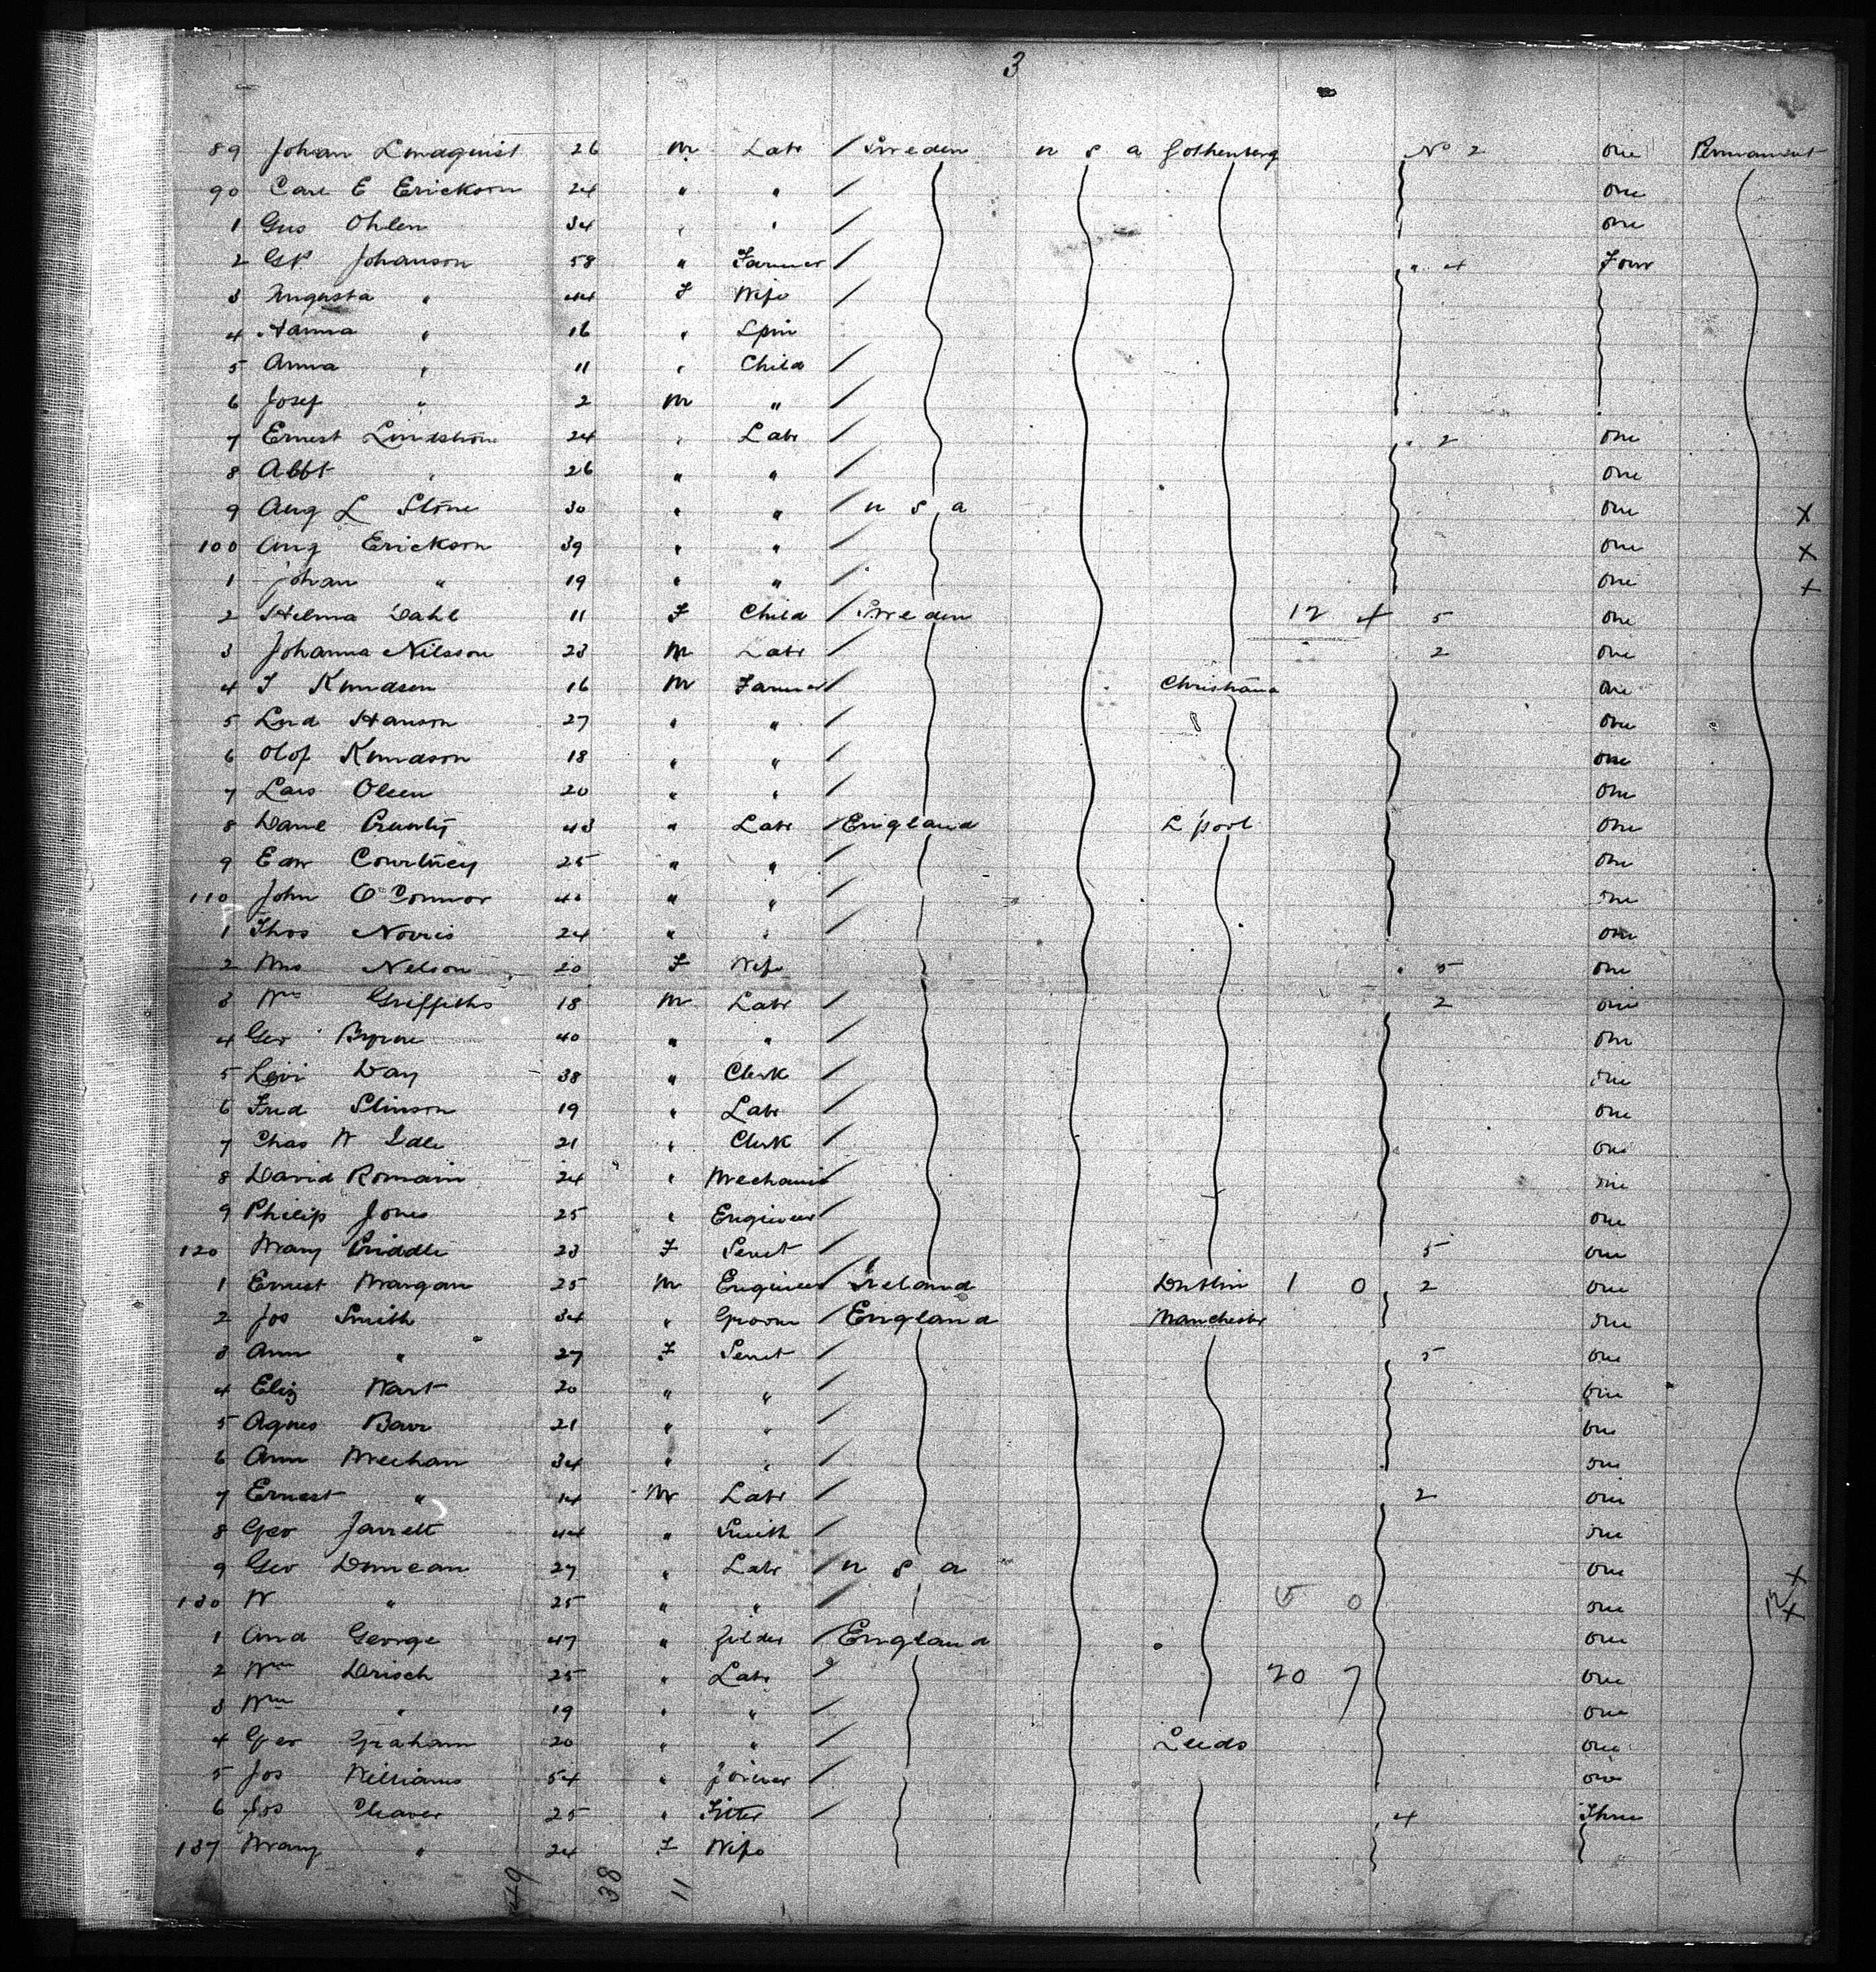 3
89 Johan Lindquist 26 m Labr / Sweden u s a Gothenberg No 2 one Permanent
90 Carl E Erickson 24 " " / one
1 Gus Ohlen 34 " " / one
2 G P Johanson 58 " Farmer / " 4 Four
3 Augusta " 44 F Wife /
4 Hanna " 16 " Spin
5 Anna " 11 " Child /
6 Josef " 2 m " /
7 Ernest Lindstrom 24 " Labr / " 2 one
8 Albt " 26 " " / one
9 Aug L Stone 30 " " / u s a one x
100 Aug Erickson 39 " " / one x
1 Johan " 19 " " / one x
2 Hilma Dahl 11 F Child / Sweden 12 4 5 one
3 Johanna Nilsson 23 m Labr / 2 one
4 J Knudsen 16 m Farmer / Christiana one
5 Lud Hanson 27 " " / one
6 Olof Knudson 18 " " / one
7 Lars Olsen 20 " " / one
8 Danl 43 " Labr / England L'pool one
9 Edw Courtney 25 " " / one
110 John O'Connor " " / one
1 Thos Norris 24 " " / one
2 Mrs Nelson 20 F Wife " 5 one
3 Wm Griffiths 18 m Labr / 2 one
4 Geo Byrne 40 " " / one
5 Levi Day 38 " Clerk / one
6 Fred Stinson 19 " Labr / one
7 Chas W Idle 21 " Clerk / one
8 David Romain 24 " Mechanic / one
9 Philip Jones 25 " Engineer / one
120 Mary Priddle 23 F Servt / 5 one
1 Ernest Morgan 25 m Engineer / Ireland Dublin 1 0 2 one
2 Jos Smith 34 " Groom / England Manchester one
3 Ann " 27 F Servt / 5 one
4 Eliz Wart 20 " " / one
5 Agnes Barr 21 " " / one
6 Ann Meehan 34 " " / one
7 Ernest " 14 m Labr / 2 one
8 Geo Jarrett 44 " Smith / one
9 Geo Duncan 27 " Labr / u s a one x
130 W " 25 " " / 5 0 one x
1 And George 47 " Gilder / England one
2 Wm Drisch 25 " Labr / 20 7 one
3 Wm " 19 " " / one
4 Geo Graham 20 " " / Leeds one
5 Jos Williams 54 " Joiner / one
6 Jos Cleaver 25 " Fitter / " 4 Three
137 Mary " 24 F Wife
49 38 11